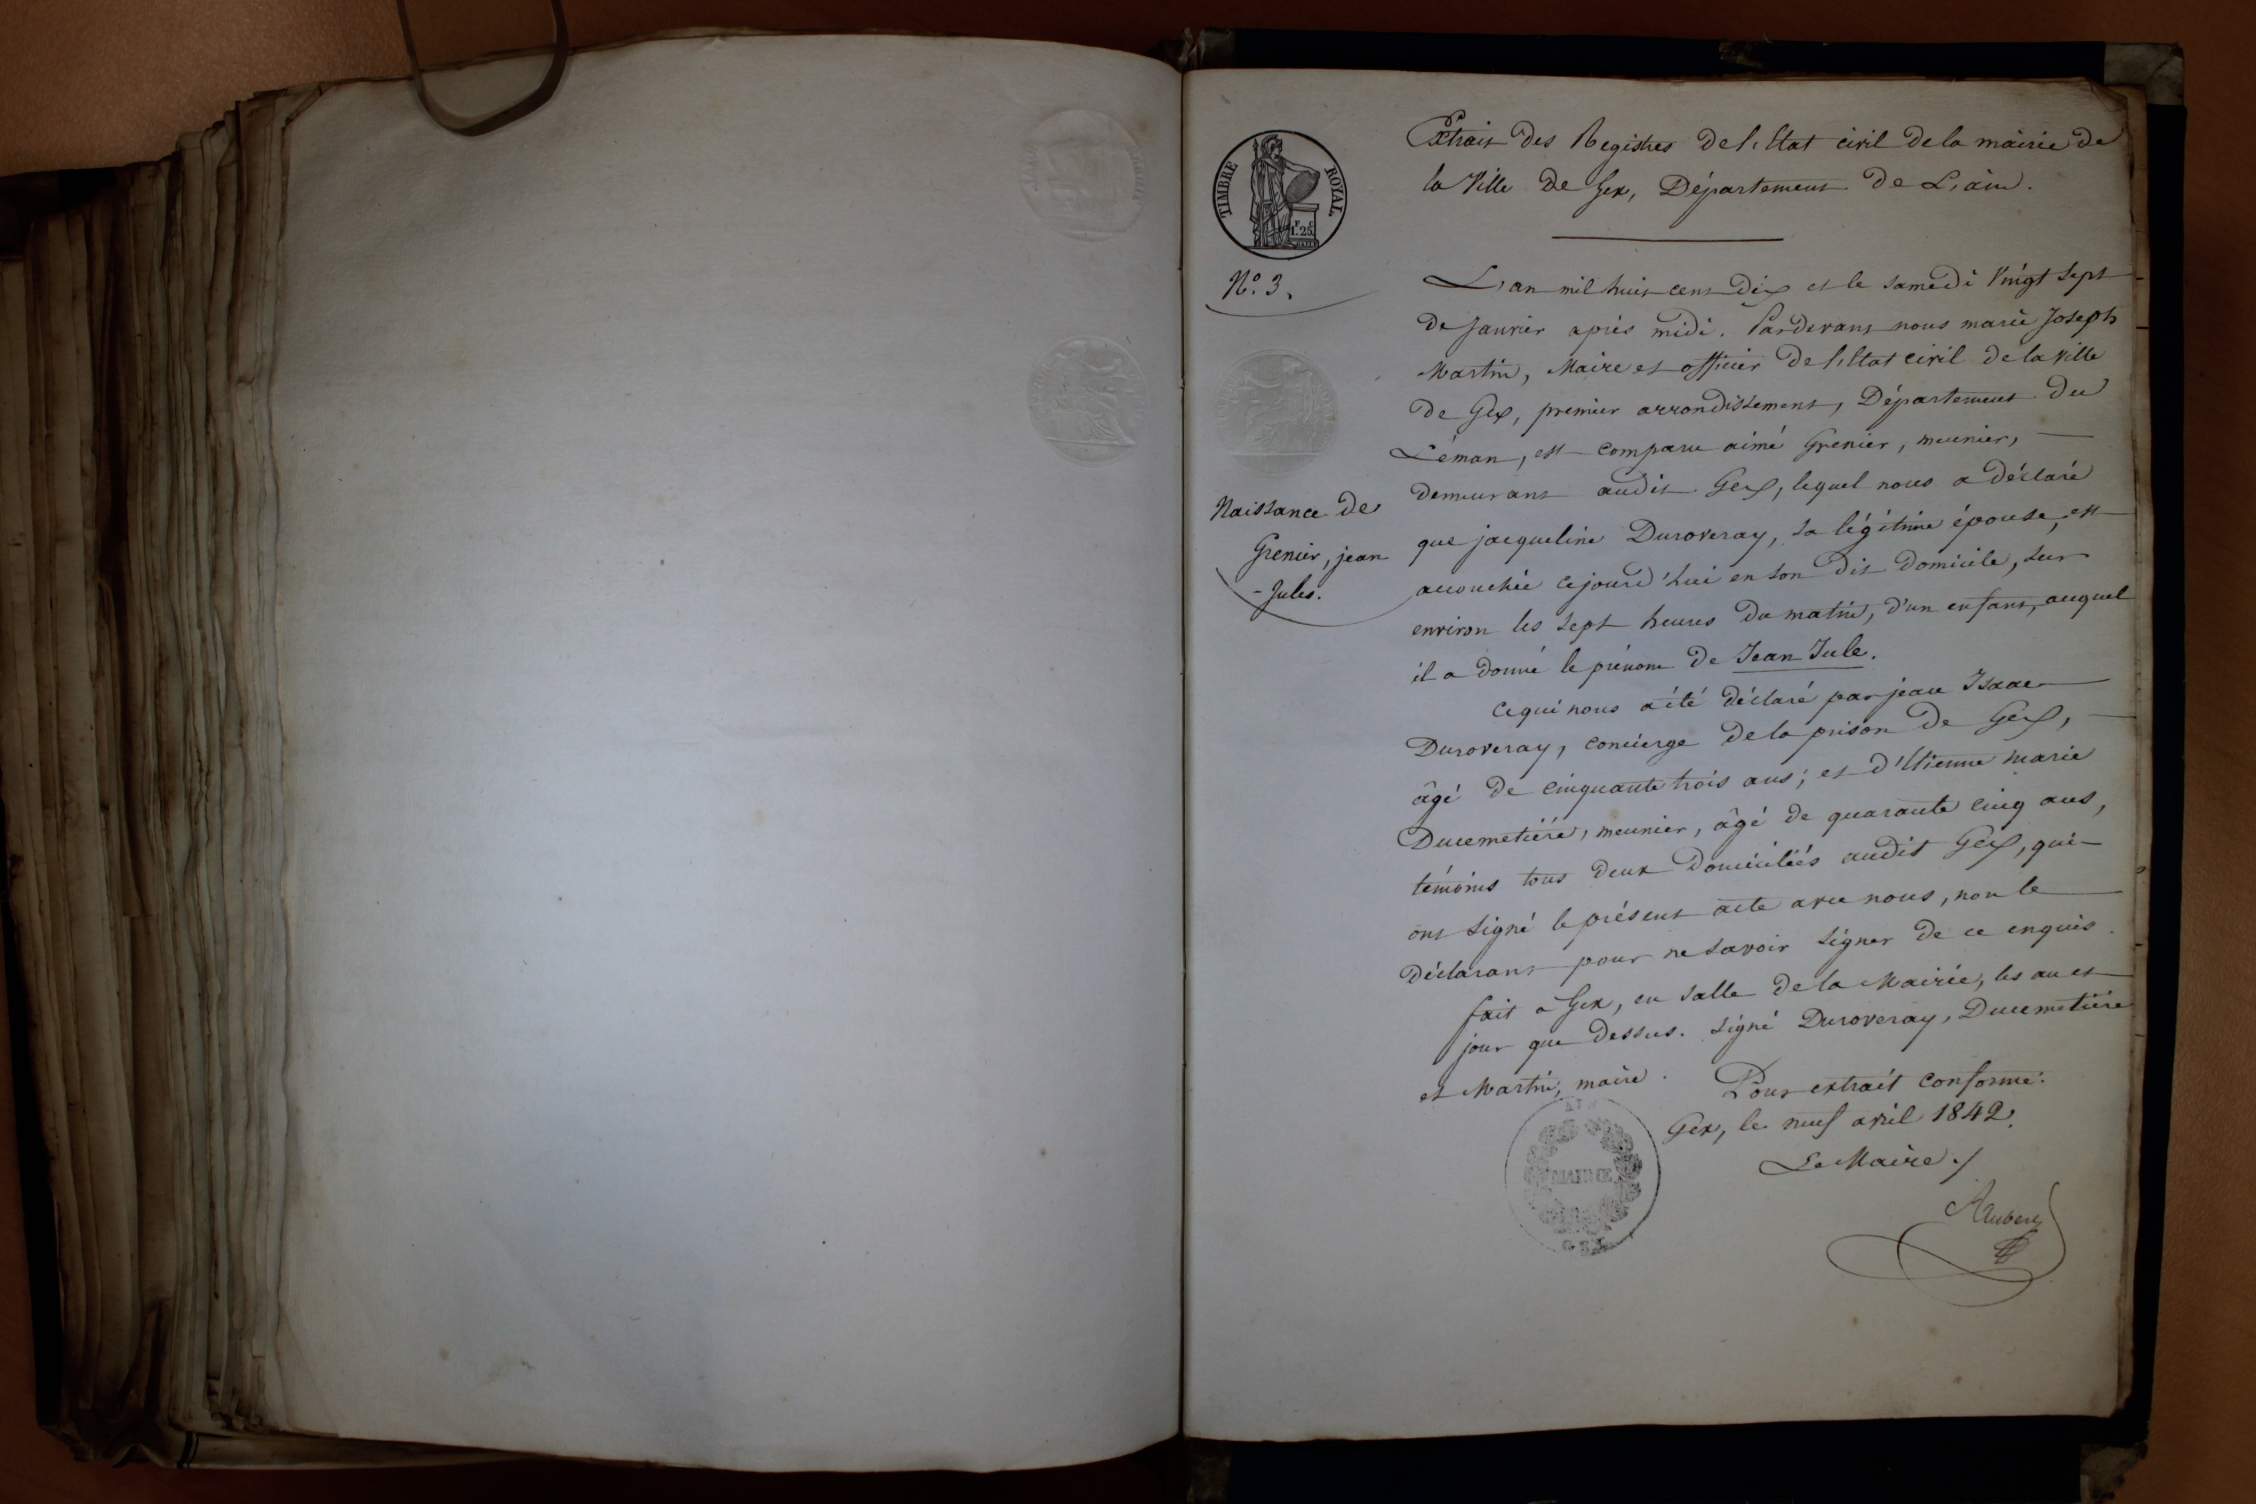 TIMBRE ROYAL
1F. 25C
Extrait des Registres de l'Etat civil de la mairie de
la Ville de Gex, Département de L'ain.
N.º 3.
L'an mil huit cent dix et le samedi vingt sept
de Janvier après midi. Pardevant nous marie Joseph
Martin, Maire et officier de l'Etat civil de la ville
de Gex, premier arrondissement, Département du
Léman, est comparu aimé Grenier, meunier,
demeurant audit Gex, lequel nous a déclaré
que jacqueline Duroveray, sa légitime épouse, est
accouchée cejourd'hui en son dit domicile, sur
environ les sept heures du matin, d'un enfant, auquel
il a donné le prénom de Jean Jule.
Naissance de
Grenier, jean
-Jules.
Ce qui nous a été déclaré par jean Isaac
Duroveray, concierge de la prison de Gex,
âgé de cinquante trois ans; et d'Etienne marie
Ducemetière, meunier, âgé de quarante cinq ans,
témoins tous deux domiciliés audit Gex, qui
ont signé le présent acte avec nous, non le
déclarant pour ne savoir signer de ce enquis.
fait à Gex, en salle de la Mairie, les an et
jour que dessus. signé Duroveray, Ducemetière
et Martin, maire. Pour extrait conforme:
Gex, le neuf avril 1842.
Le Maire./
MAIRIE
GEX